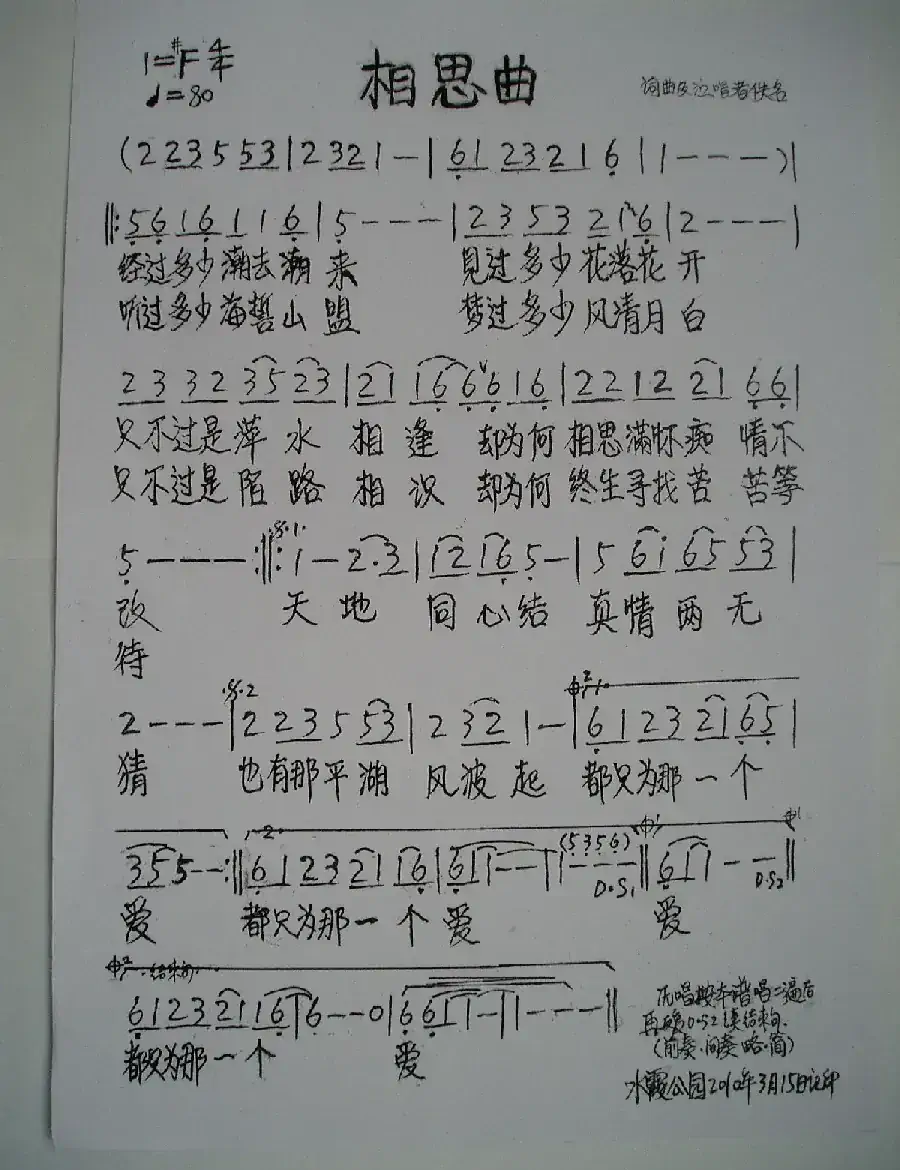 1=#F 4/4
相思曲
♩=80
词曲及泣唱者佚名
(2 2 3 5 5 3 | 2 3 2 1 — | 6 1 2 3 2 1 6 | 1 - - - )|
‖: 5 6 1 6 1 1 6 | 5 - - - | 2 3 5 3 2 1 6 | 2 - - - |
经过多少潮去潮来 见过多少花落花开
听过多少海誓山盟 梦过多少风清月白
2 3 3 2 3 5 2 3 | 2 1 1 6 6 6 1 6 | 2 2 1 2 2 1 6 6 |
只不过是萍水相逢 却为何相思满怀痴情不
只不过是陌路相识 却为何终生寻找苦苦等
5 - - - :‖: 1 — 2 · 3 | 1 2 1 6 5 — | 5 6 i 6 5 5 3 |
改 天地同心结 真情两无
待
2 - - - | 2 2 3 5 5 3 | 2 3 2 1 — | 6 1 2 3 2 1 6 5 |
猜 也有那平湖风波起 都只为那一个
3 5 5 - - :‖ 6 1 2 3 2 1 1 6 | 6 1 1 - - | 1 - - - (5 3 5 6) D.S1 ‖ 6 1 1 - - D.S2 ‖
爱 都只为那一个爱 爱
结束句
6 1 2 3 2 1 1 6 | 6 - - 0 | 6 6 1 1 - | 1 - - - ‖
都只为那一个 爱
唱按本谱唱二遍后
再 D.S2 结束句.
(前奏.间奏略.简)
水霞公园2010年3月15日记印